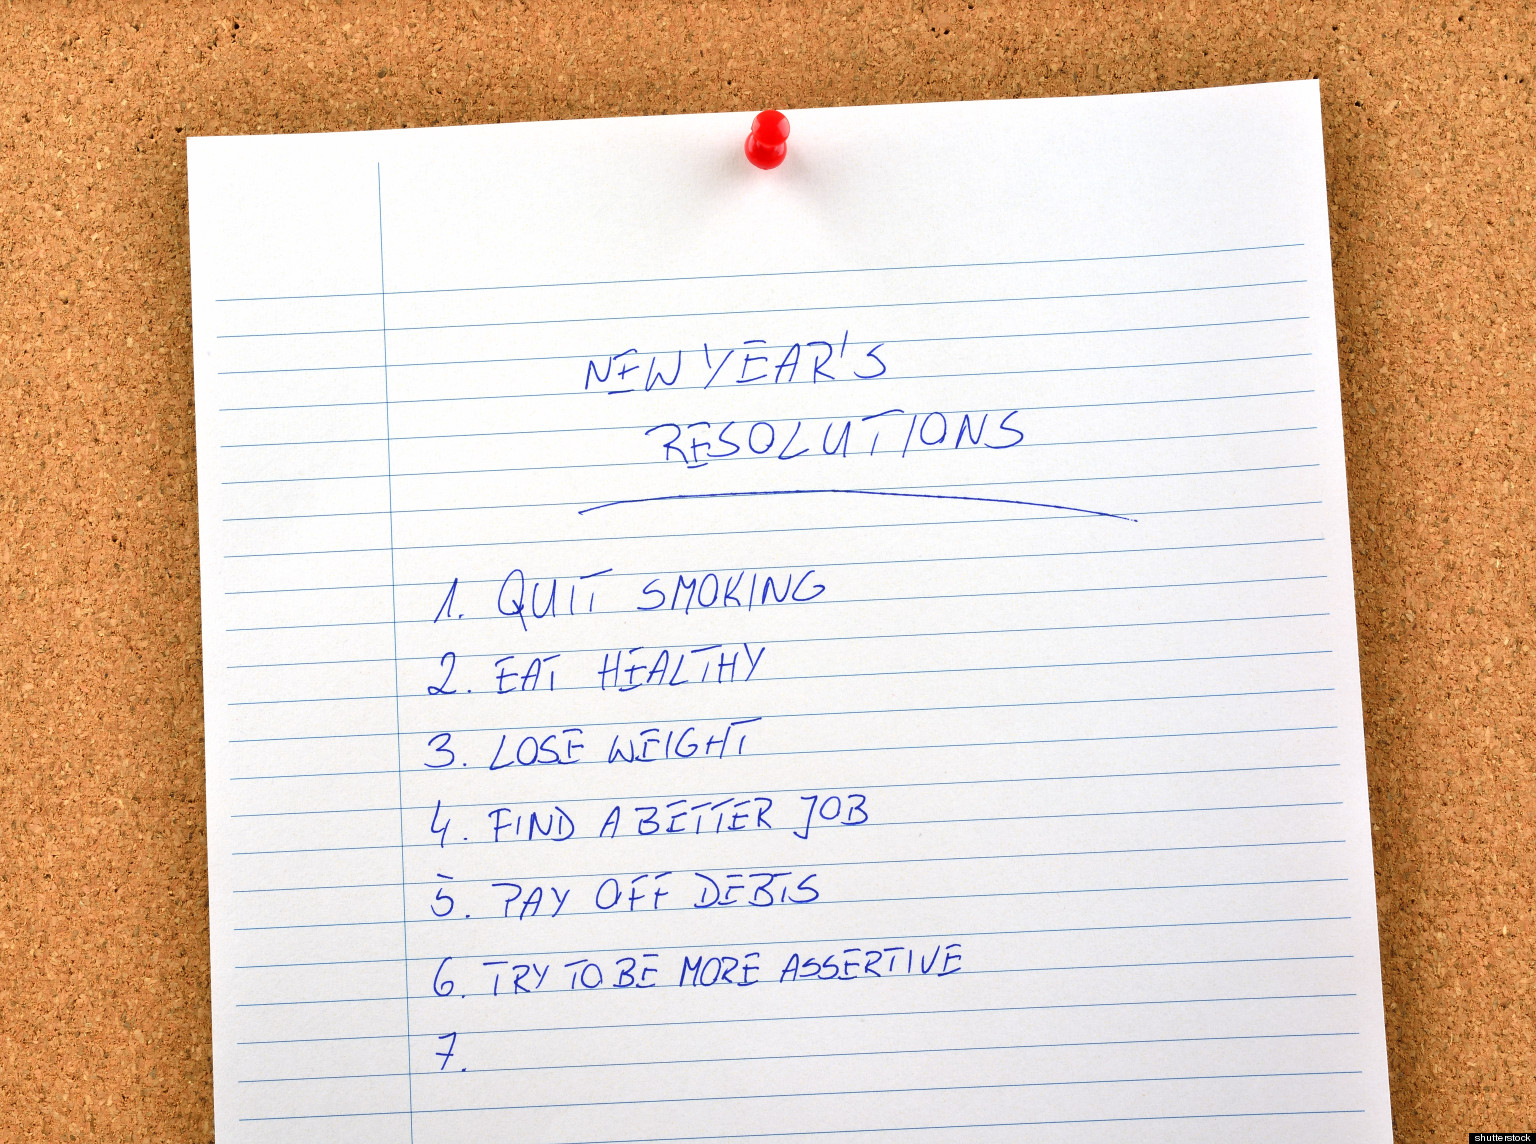 NEW YEAR'S
RESOLUTIONS
1. QUIT SMOKING
2. EAT HEALTHY
3. LOSE WEIGHT
4. FIND A BETTER JOB
5. PAY OFF DEBTS
6. TRY TO BE MORE ASSERTIVE
7.
shutterstock